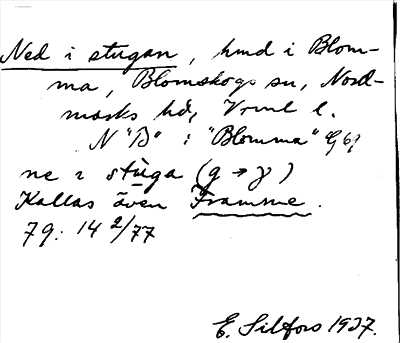 Ned i stugan, hmd i Blom-
ma, Blomskogs sn, Nord-
marks hd, Vrml l.
N "B" i "Blomma" G6;
ne i stùga (g → γ)
Kallas även Framme.
79: 14 2/77
E. Silfors 1937.